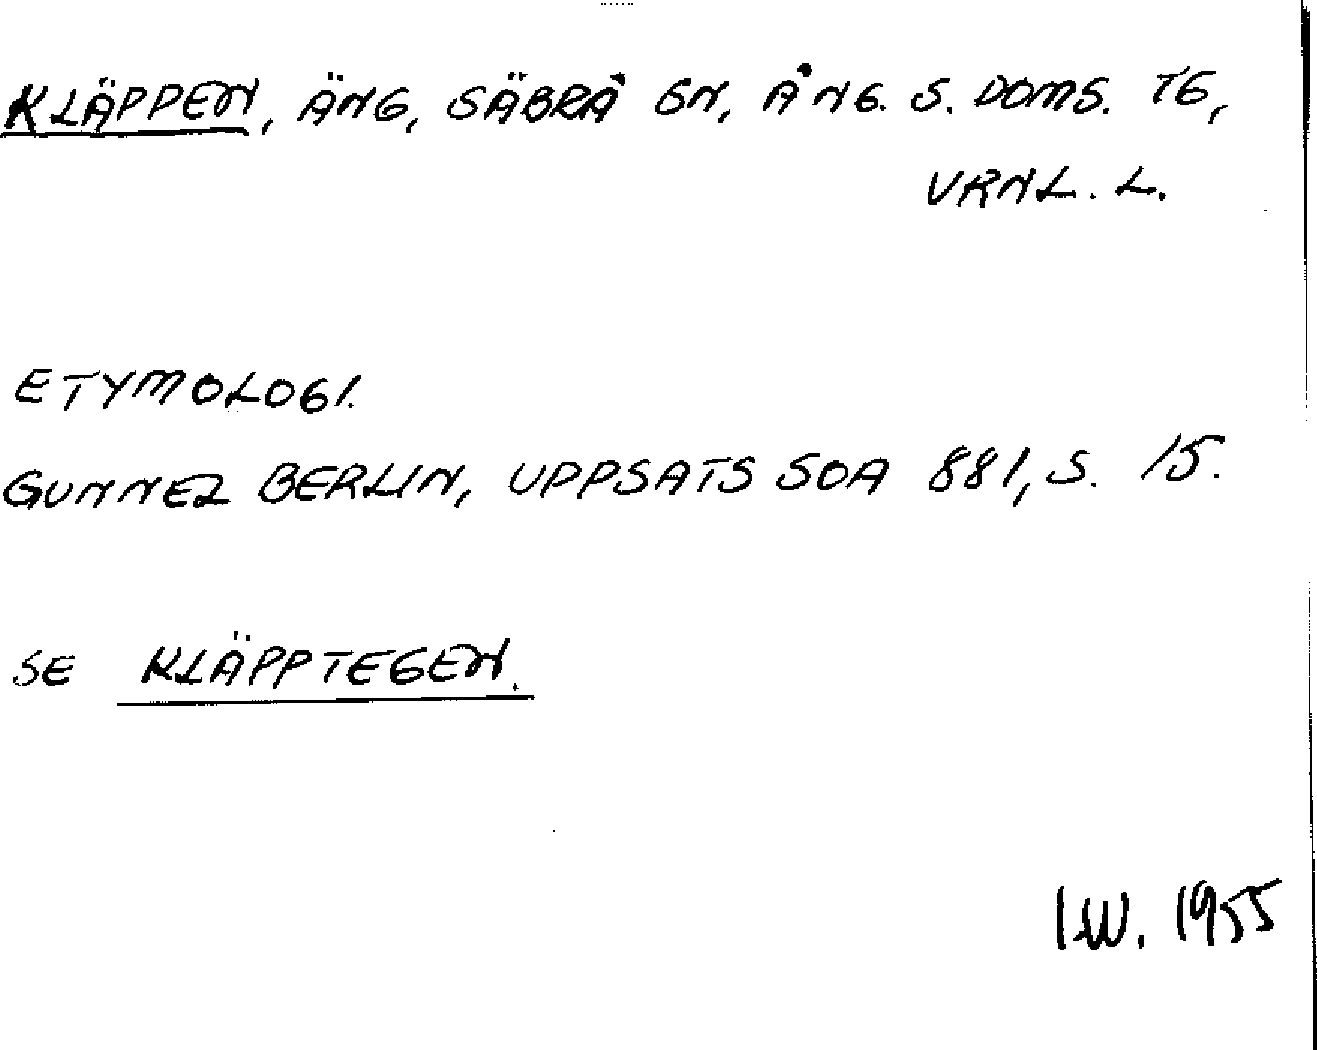 KLÄPPEN, ÄNG, SÄBRÅ SN, ÅNG. S. DOMS. TG,
VRNL. L.
ETYMOLOGI.
GUNNEL BERLIN, UPPSATS SOA 881, S. 15.
SE KLÄPPTEGEN.
I.W. 1955